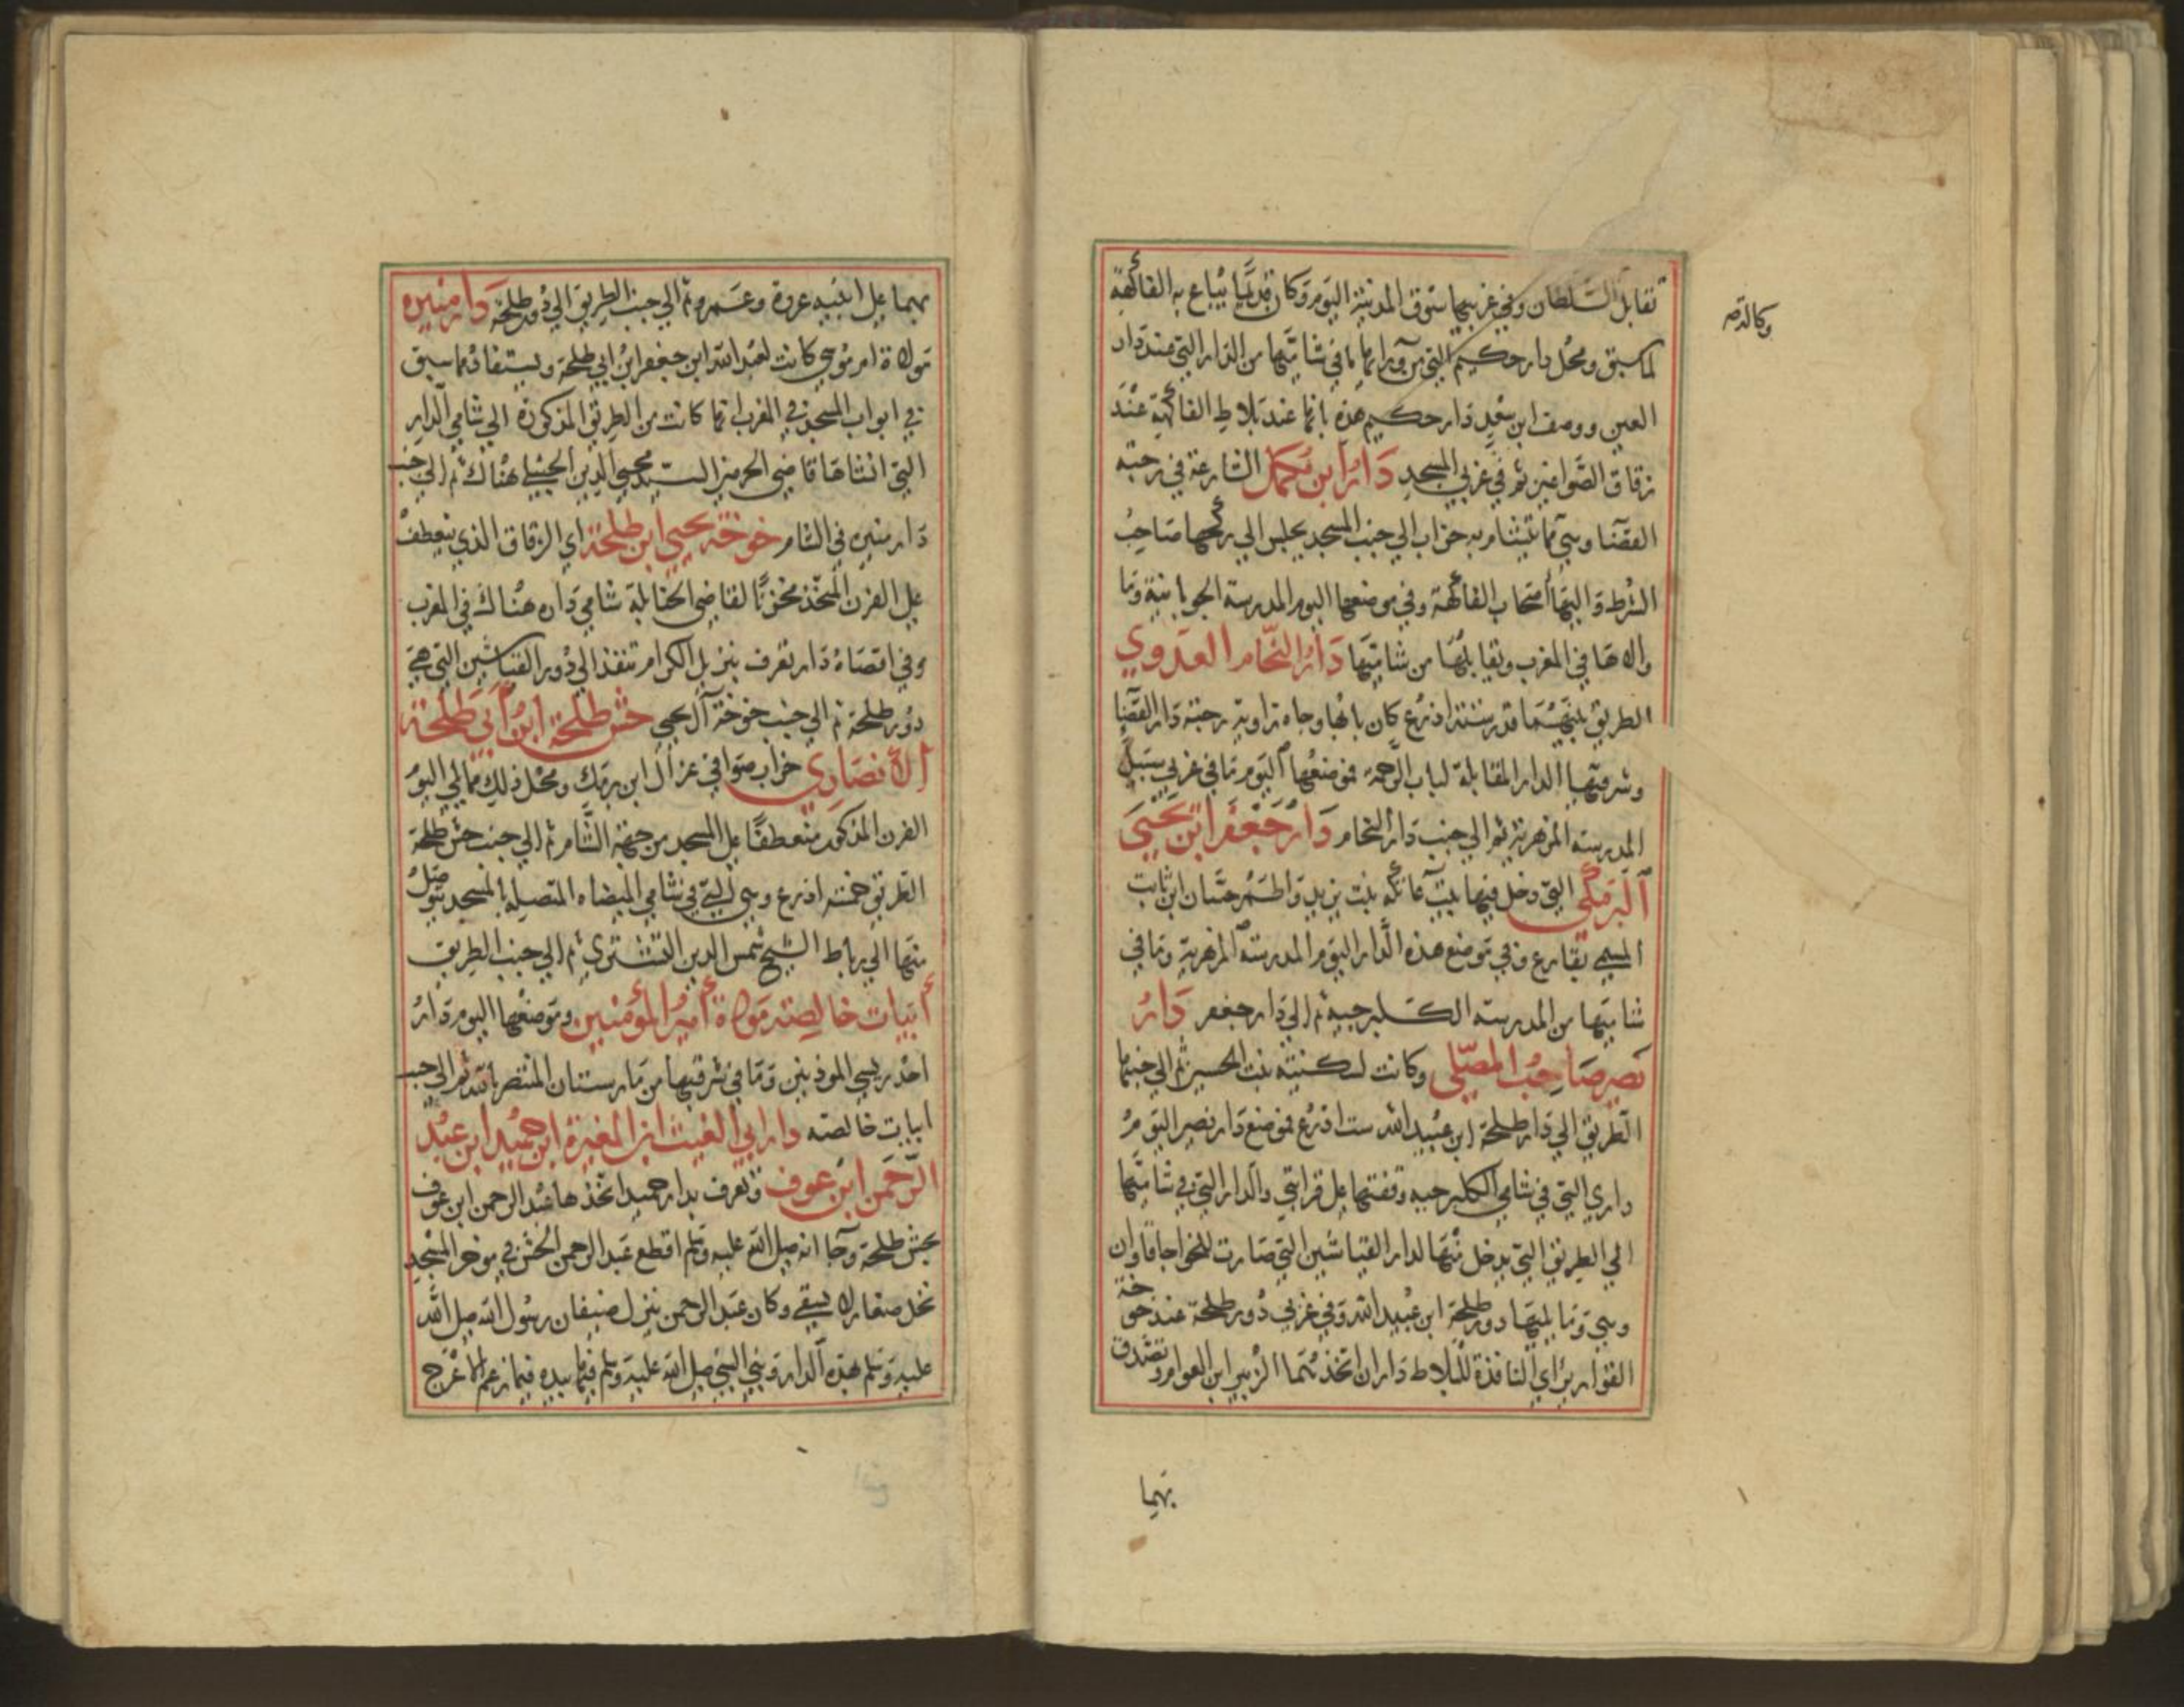 تقابل السلطان وفي غربيها سوق المدينة اليوم وكان قديما يباع به الفاكهة
لما سبق ومحل دار حكيم التي من ورائها ما في شاميها من الدار التي عند دار
العين ووصف ابن سعد دار حكيم هذه بانها عند بلاط الفاكهة عند
زقاق الصواغين ثم في غربي المسجد دار ابن مكمل الشارعة في رحبة
القضا وهي مما يتشام به خراب الي جنب المسجد يجلس الي ركحها صاحب
الشرط واليها اصحاب الفاكهة وفي موضعها اليوم المدرسة الجوبانية وما
والاها في المغرب ويقابلها من شاميها دار النحام العدوي
الطريق بينهما قدر ستة اذرع كان بابها وجاه زاوية رحبة دار القضا
وشرقيها الدار المقابلة لباب الرحمة فموضعها اليوم ما في غربي سبيل
المدرسة المزهرية ثم الي جنب دار النحام دار جعفر ابن يحيي
البرمكي التي دخل فيها بيت عاتكة بنت يزيد واطم حسان ابن ثابت
المسمي بفارع وفي موضع هذه الدار اليوم المدرسة المزهرية وما في
شاميها من المدرسة الكلبرجية ثم الي دار جعفر دار
نصير صاحب المصلي وكانت لسكينة بنت الحسين ثم الي جنبها
الطريق الي دار طلحة ابن عبيد الله ست اذرع فموضع دار نصير اليوم
داري التي في شامي الكلبرجية وقفتها علي قرابتي والدار التي في شاميها
الي الطريق التي يدخل منها لدار القياشين التي صارت للخواجا قاوان
وهي وما يليها دور طلحة ابن عبيد الله وفي غربي دور طلحة عند خوخة
القوارير اي النافذة للبلاط داران اتخذهما الزبير ابن العوام وتصدق
بهما
بهما علي ابنيه عروة وعمرو ثم الي جنب الطريق الي دور طلحة دار منيرة
مولاة ام موسي كانت لعبد الله ابن جعفر ابن ابي طلحة ويستفاد مما سبق
في ابواب المسجد في المغرب انها كانت من الطريق المذكورة الي شامي الدار
التي انشاها قاضي الحرمين السيد محيي الدين الحنبلي هناك ثم الي جنب
دار منيرة في الشام خوخة يحيي ابن طلحة اي الزقاق الذي ينعطف
علي الفرن المتخذ مخزنا لقاضي الحنابلة شامي داره هناك في المغرب
وفي اقصاه دار تعرف بنزيل الكرام تنفذ الي دور القياشين التي هي
دور طلحة ثم الي جنب خوخة آل يحيي حش طلحة ابن ابي طلحة
الأنصاري خراب صوافي عن آل ابن برمك ومحل ذلك مما يلي اليوم
الفرن المذكور منعطفا علي المسجد من جهة الشام ثم الي جنب حش طلحة
الطريق خمسة اذرع وهي التي في شامي الميضاه المتصلة بالمسجد يتوصل
منها الي رباط الشيخ شمس الدين التشتري ثم الي جنب الطريق
أبيات خالصة مولاة أمير المؤمنين وموضعها اليوم دار
احد ريسي الموذنين وما في شرقيها من مارستان المنتصر بالله ثم الي جنب
ابيات خالصه دار ابي الغيث ابن المغيرة ابن حميد ابن عبد
الرحمن ابن عوف وتعرف بدار حميد اتخذها عبد الرحمن ابن عوف
بحش طلحة وجا انه صلي الله عليه وسلم اقطع عبد الرحمن الحش في موخر المسجد
نخل صغار لا يسقي وكان عبد الرحمن ينزل ضيفان رسول الله صلي الله
عليه وسلم بهذه الدار وبني النبي صلي الله عليه وسلم فيها بيده فيما زعم الاعرج